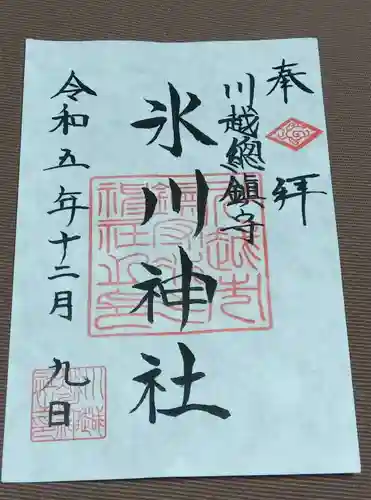 奉拝
川越總鎮守
氷川神社
令和五年十二月九日